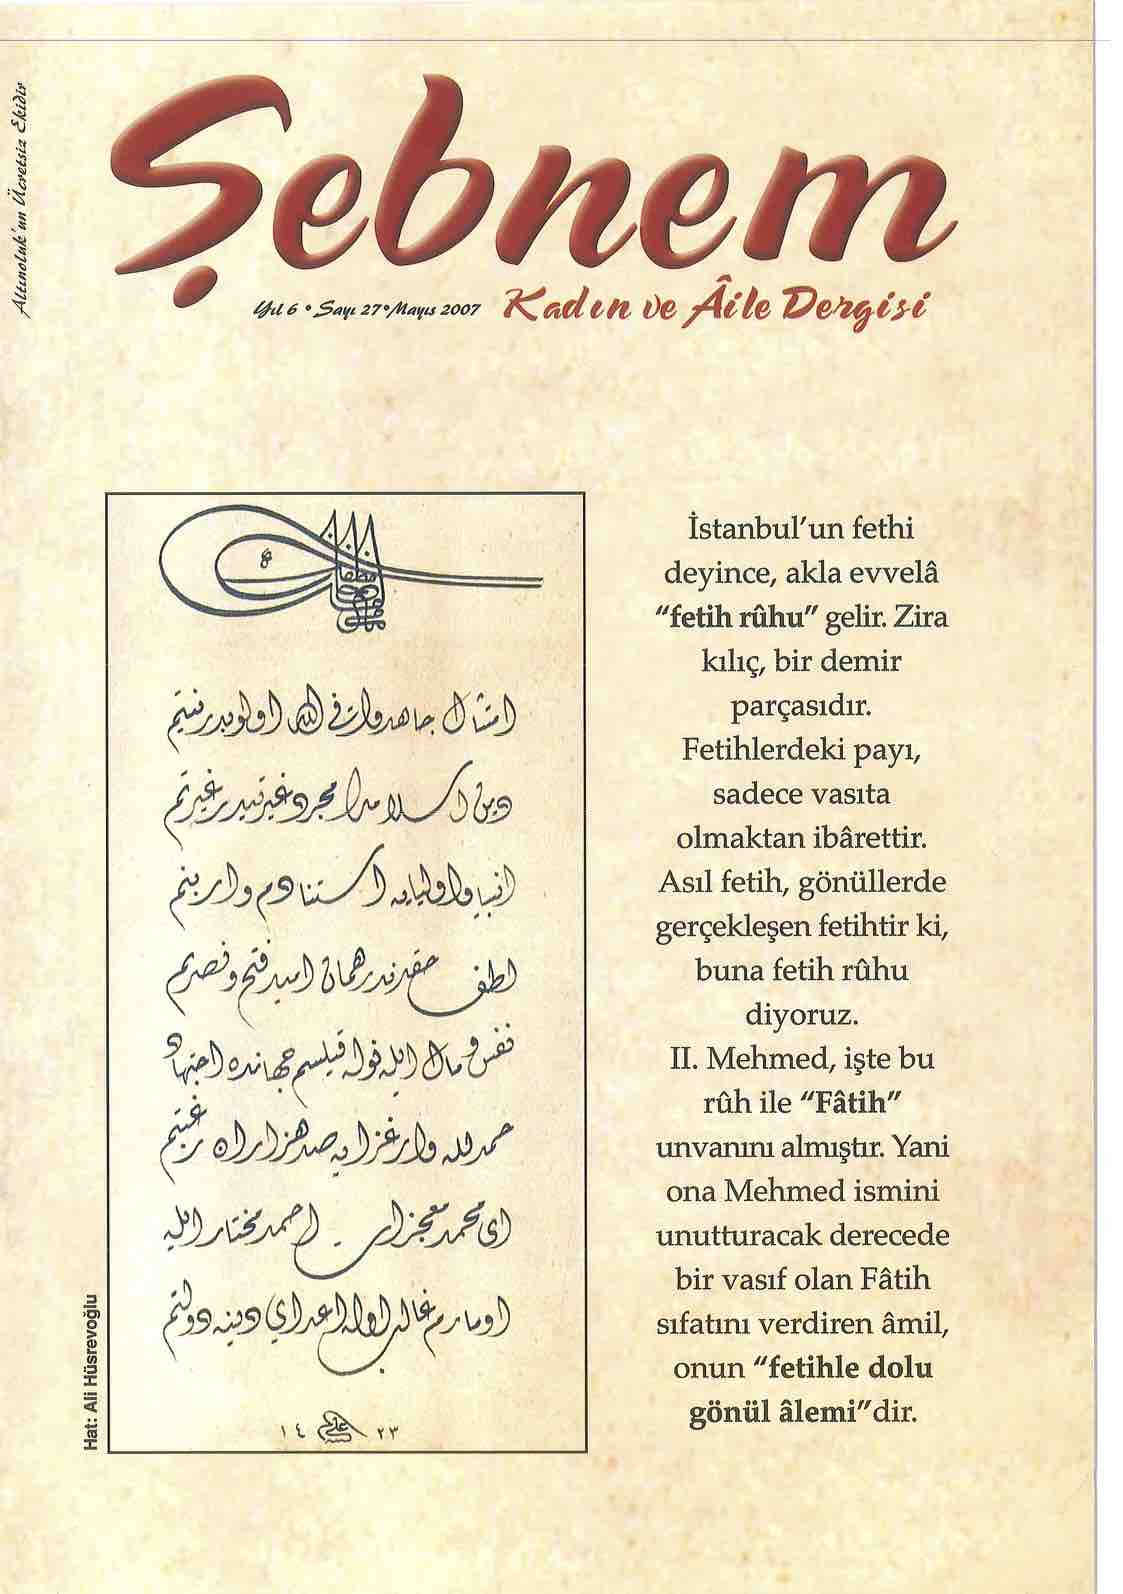 Altınoluk'un Ücretsiz Ekidir
Şebnem
Yıl 6 • Sayı 27 • Mayıs 2007
Kadın ve Âile Dergisi
امتثال جاهدوا فی الله اولوبدر نیتم
دین اسلامك مجرد غیرتیدر غیرتم
انبیا و اولیایه استنادم وار بنم
لطف حقدندر همان امید فتح و نصرتم
نفس و مال ایله نوله قیلسم جهانده اجتهاد
حمد لله وار غزایه صد هزاران رغبتم
ای محمد معجزات احمد مختار ایله
اومارم غالب اوله اعدای دینه دولتم
١٤٢٣
Hat: Ali Hüsrevoğlu
İstanbul'un fethi
deyince, akla evvelâ
"fetih rûhu" gelir. Zira
kılıç, bir demir
parçasıdır.
Fetihlerdeki payı,
sadece vasıta
olmaktan ibârettir.
Asıl fetih, gönüllerde
gerçekleşen fetihtir ki,
buna fetih rûhu
diyoruz.
II. Mehmed, işte bu
rûh ile "Fâtih"
unvanını almıştır. Yani
ona Mehmed ismini
unutturacak derecede
bir vasıf olan Fâtih
sıfatını verdiren âmil,
onun "fetihle dolu
gönül âlemi"dir.